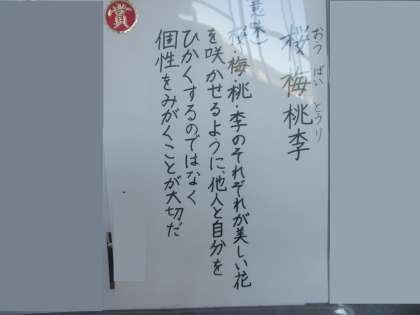 桜梅桃李
おうばいとうり
(意味)
桜・梅・桃・李のそれぞれが美しい花
を咲かせるように、他人と自分を
ひかくするのではなく
個性をみがくことが大切だ
賞